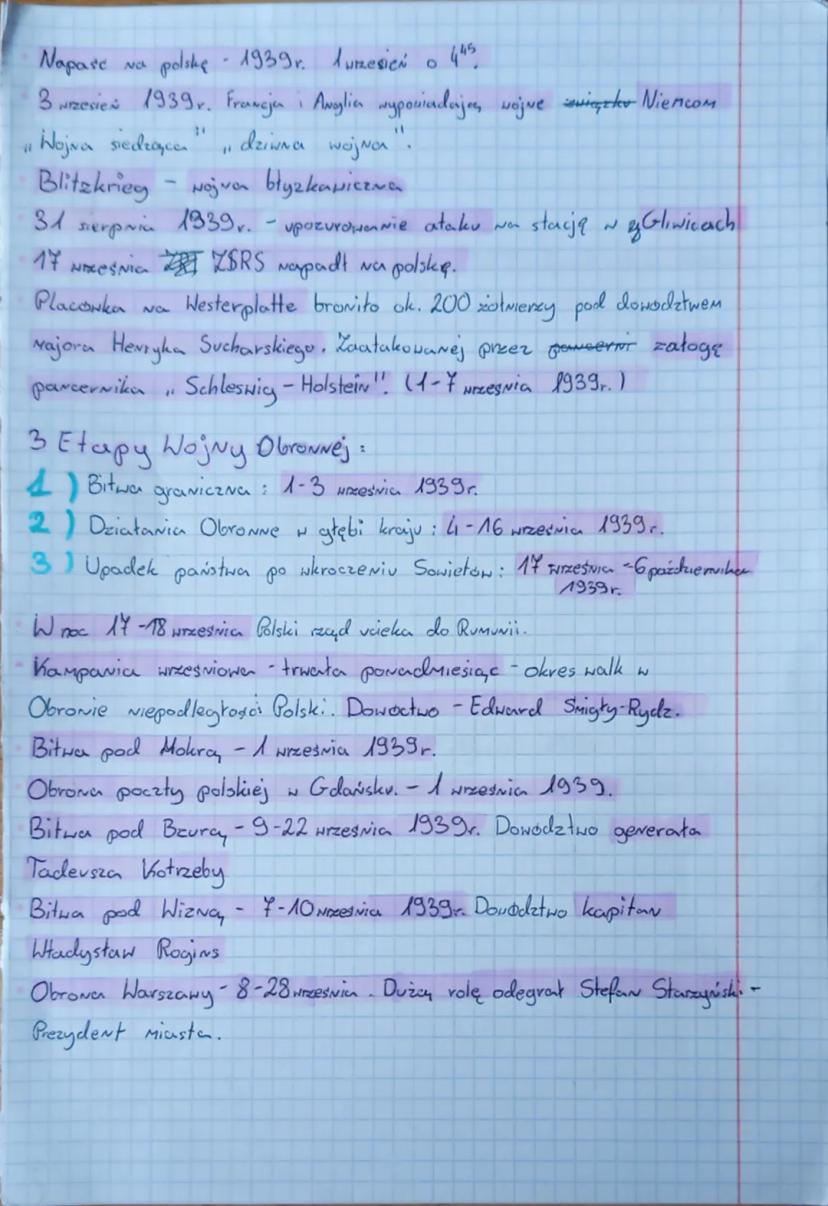 Napaść na polskę - 1939r. 1 wrzesień o 4⁴⁵.
3 wrzesień 1939r. Francja i Anglia wypowiadają wojne związku Niemcom
„Wojna siedząca" „dziwna wojna".
Blitzkrieg - wojna błyzkawiczna
31 sierpnia 1939r. - upozurowanie ataku na stację w Gliwicach
17 września ZSRS napadł na polskę.
Placówka na Westerplatte broniło ok. 200 żołnierzy pod dowództwem
majora Henryka Sucharskiego. Zaatakowanej przez pancerni załogę
pancernika „Schleswig-Holstein". (1-7 września 1939r.)
3 Etapy Wojny Obronnej:
1) Bitwa graniczna: 1-3 września 1939r.
2) Działania Obronne w głębi kraju: 4-16 września 1939r.
3) Upadek państwa po wkroczeniu Sowietów: 17 września -6 października
1939r.
W noc 17-18 września Polski rząd ucieka do Rumunii.
Kampania wrześniowa - trwała ponadmiesiąc - okres walk w
Obronie niepodległości Polski. Dowóctwo - Edward Śmigły-Rydz.
Bitwa pod Mokrą - 1 września 1939r.
Obrona poczty polskiej w Gdańsku. - 1 września 1939.
Bitwa pod Bzurą - 9-22 września 1939r. Dowództwo generała
Tadeusza Kotrzeby
Bitwa pod Wizną - 7-10 września 1939r. Dowództwo kapitan
Władysław Rogins
Obrona Warszawy - 8-28 września. Dużą rolę odegrał Stefan Starzyński. -
Prezydent miasta.